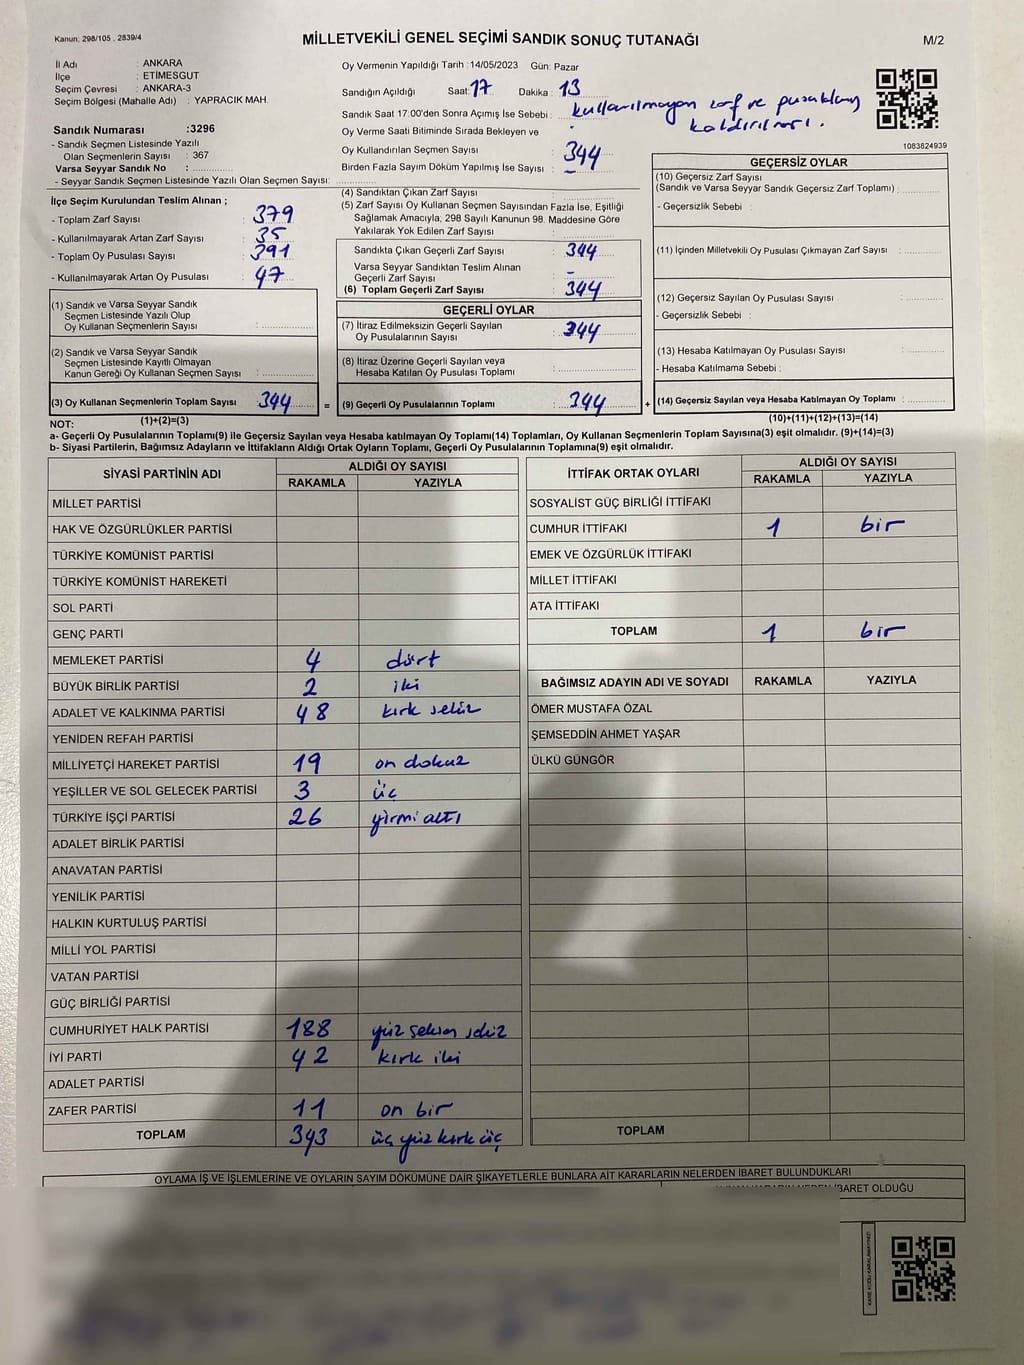 Kanun: 298/105 , 2839/4
MİLLETVEKİLİ GENEL SEÇİMİ SANDIK SONUÇ TUTANAĞI
M/2
İl Adı : ANKARA
İlçe : ETİMESGUT
Seçim Çevresi : ANKARA-3
Seçim Bölgesi (Mahalle Adı) : YAPRACIK MAH.
Sandık Numarası :3296
- Sandık Seçmen Listesinde Yazılı
Olan Seçmenlerin Sayısı : 367
Varsa Seyyar Sandık No :
- Seyyar Sandık Seçmen Listesinde Yazılı Olan Seçmen Sayısı:
Oy Vermenin Yapıldığı Tarih : 14/05/2023 Gün: Pazar
Sandığın Açıldığı Saat: 17 Dakika : 13
Sandık Saat 17:00'den Sonra Açımış İse Sebebi : kullanılmayan zarf ve pusulaların
kaldırılması.
Oy Verme Saati Bitiminde Sırada Bekleyen ve
Oy Kullandırılan Seçmen Sayısı : 344
Birden Fazla Sayım Döküm Yapılmış İse Sayısı : -
1083624939
İlçe Seçim Kurulundan Teslim Alınan ;
- Toplam Zarf Sayısı : 379
- Kullanılmayarak Artan Zarf Sayısı : 35
- Toplam Oy Pusulası Sayısı : 391
- Kullanılmayarak Artan Oy Pusulası : 47
(1) Sandık ve Varsa Seyyar Sandık
Seçmen Listesinde Yazılı Olup
Oy Kullanan Seçmenlerin Sayısı :
(2) Sandık ve Varsa Seyyar Sandık
Seçmen Listesinde Kayıtlı Olmayan
Kanun Gereği Oy Kullanan Seçmen Sayısı :
(3) Oy Kullanan Seçmenlerin Toplam Sayısı : 344
(1)+(2)=(3)
(4) Sandıktan Çıkan Zarf Sayısı :
(5) Zarf Sayısı Oy Kullanan Seçmen Sayısından Fazla İse, Eşitliği
Sağlamak Amacıyla; 298 Sayılı Kanunun 98. Maddesine Göre
Yakılarak Yok Edilen Zarf Sayısı :
Sandıkta Çıkan Geçerli Zarf Sayısı : 344
Varsa Seyyar Sandıktan Teslim Alınan
Geçerli Zarf Sayısı : -
(6) Toplam Geçerli Zarf Sayısı : 344
GEÇERLİ OYLAR
(7) İtiraz Edilmeksizin Geçerli Sayılan
Oy Pusulalarının Sayısı : 344
(8) İtiraz Üzerine Geçerli Sayılan veya
Hesaba Katılan Oy Pusulası Toplamı :
= (9) Geçerli Oy Pusulalarının Toplamı : 344
GEÇERSİZ OYLAR
(10) Geçersiz Zarf Sayısı
(Sandık ve Varsa Seyyar Sandık Geçersiz Zarf Toplamı) :
- Geçersizlik Sebebi :
(11) İçinden Milletvekili Oy Pusulası Çıkmayan Zarf Sayısı :
(12) Geçersiz Sayılan Oy Pusulası Sayısı :
- Geçersizlik Sebebi :
(13) Hesaba Katılmayan Oy Pusulası Sayısı :
- Hesaba Katılmama Sebebi :
+ (14) Geçersiz Sayılan veya Hesaba Katılmayan Oy Toplamı :
(10)+(11)+(12)+(13)=(14)
NOT:
a- Geçerli Oy Pusulalarının Toplamı(9) ile Geçersiz Sayılan veya Hesaba katılmayan Oy Toplamı(14) Toplamları, Oy Kullanan Seçmenlerin Toplam Sayısına(3) eşit olmalıdır. (9)+(14)=(3)
b- Siyasi Partilerin, Bağımsız Adayların ve İttifakların Aldığı Ortak Oyların Toplamı, Geçerli Oy Pusulalarının Toplamına(9) eşit olmalıdır.
SİYASİ PARTİNİN ADI ALDIĞI OY SAYISI
RAKAMLA YAZIYLA
MİLLET PARTİSİ
HAK VE ÖZGÜRLÜKLER PARTİSİ
TÜRKİYE KOMÜNİST PARTİSİ
TÜRKİYE KOMÜNİST HAREKETİ
SOL PARTİ
GENÇ PARTİ
MEMLEKET PARTİSİ 4 dört
BÜYÜK BİRLİK PARTİSİ 2 iki
ADALET VE KALKINMA PARTİSİ 48 kırk sekiz
YENİDEN REFAH PARTİSİ
MİLLİYETÇİ HAREKET PARTİSİ 19 on dokuz
YEŞİLLER VE SOL GELECEK PARTİSİ 3 üç
TÜRKİYE İŞÇİ PARTİSİ 26 yirmi altı
ADALET BİRLİK PARTİSİ
ANAVATAN PARTİSİ
YENİLİK PARTİSİ
HALKIN KURTULUŞ PARTİSİ
MİLLİ YOL PARTİSİ
VATAN PARTİSİ
GÜÇ BİRLİĞİ PARTİSİ
CUMHURİYET HALK PARTİSİ 188 yüz seksen sekiz
İYİ PARTİ 42 kırk iki
ADALET PARTİSİ
ZAFER PARTİSİ 11 on bir
TOPLAM 343 üç yüz kırk üç
İTTİFAK ORTAK OYLARI ALDIĞI OY SAYISI
RAKAMLA YAZIYLA
SOSYALİST GÜÇ BİRLİĞİ İTTİFAKI
CUMHUR İTTİFAKI 1 bir
EMEK VE ÖZGÜRLÜK İTTİFAKI
MİLLET İTTİFAKI
ATA İTTİFAKI
TOPLAM 1 bir
BAĞIMSIZ ADAYIN ADI VE SOYADI RAKAMLA YAZIYLA
ÖMER MUSTAFA ÖZAL
ŞEMSEDDİN AHMET YAŞAR
ÜLKÜ GÜNGÖR
TOPLAM
OYLAMA İŞ VE İŞLEMLERİNE VE OYLARIN SAYIM DÖKÜMÜNE DAİR ŞİKAYETLERLE BUNLARA AİT KARARLARIN NELERDEN İBARET BULUNDUKLARI
İBARET OLDUĞU
KARE KODU KARALAMAYINIZ!